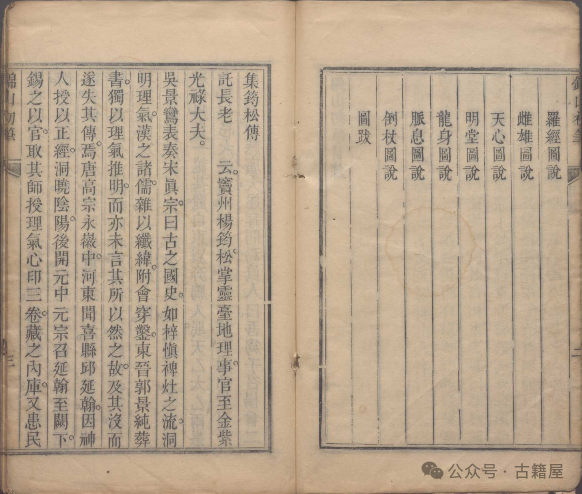 羅經圖說
雌雄圖說
天心圖說
明堂圖說
龍身圖說
脈息圖說
倒杖圖說
圖跋
集筠松傳
託長老 云。竇州楊筠松掌靈臺地理事官至金紫
光祿大夫。
吳景鸞表奏宋眞宗曰古之國史。如梓愼裨灶之流。洞
明理氣。漢之諸儒。雜以纖緯。附會穿鑿。東晉郭景純葬
書獨以理氣推明。而亦未言其所以然之故。及其沒而
遂失其傳。焉唐高宗永徽中。河東聞喜縣邱延翰。因神
人授以正經。洞曉陰陽。後開元中 元宗召延翰至闕下。
錫之以官。取其師授理氣心印三卷。藏之內庫。又患民
三
公众号·古籍屋